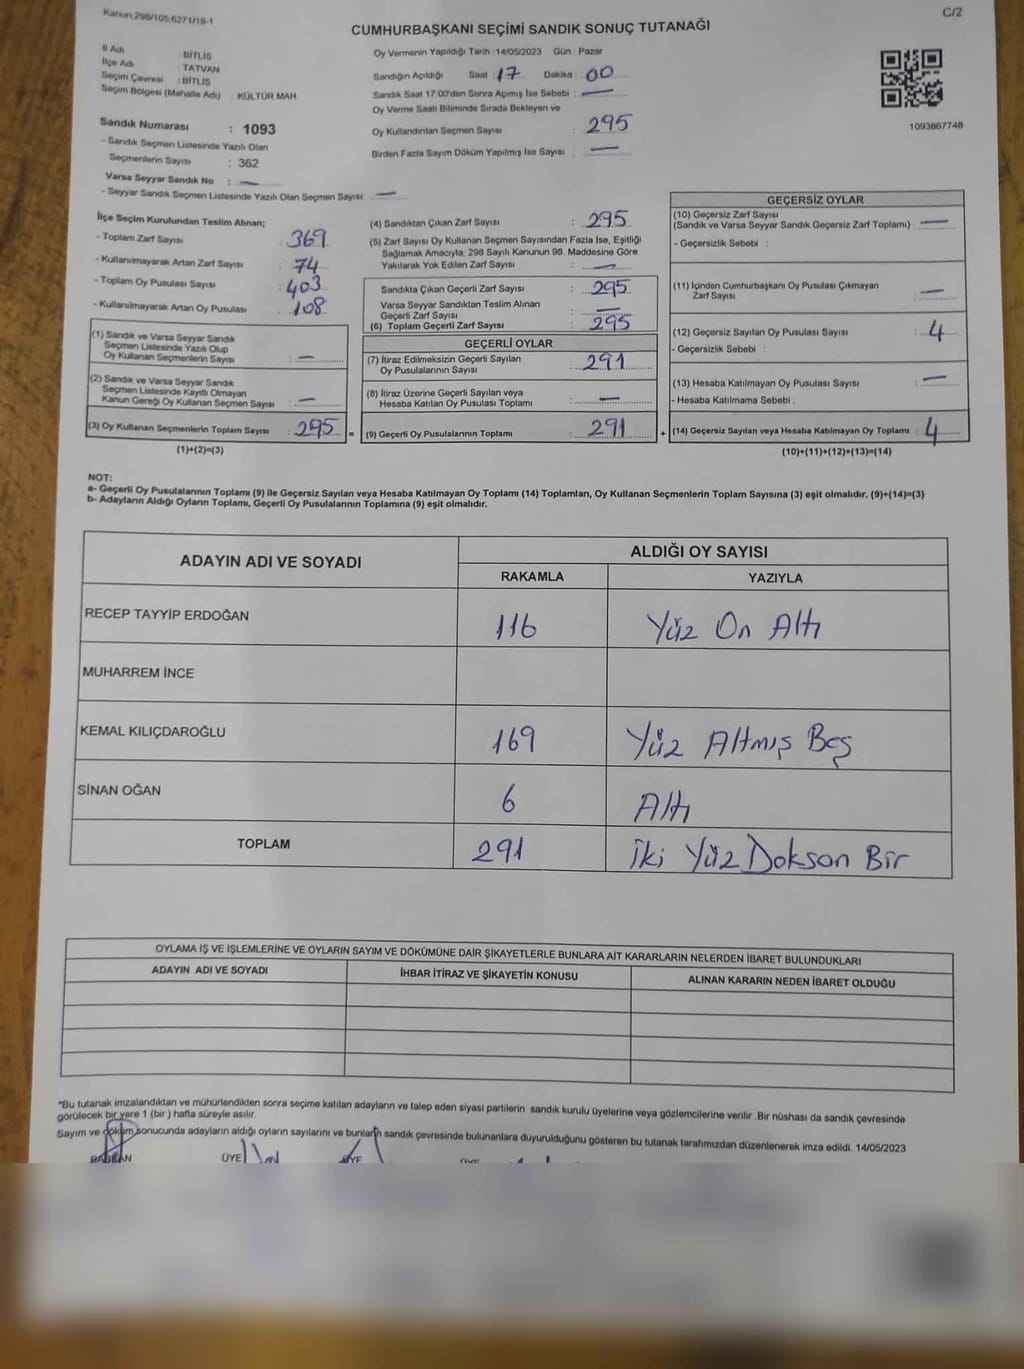 Kanun,298/105,6271/18-1
C/2
CUMHURBAŞKANI SEÇİMİ SANDIK SONUÇ TUTANAĞI
İl Adı : BİTLİS
İlçe Adı : TATVAN
Seçim Çevresi : BİTLİS
Seçim Bölgesi (Mahalle Adı) : KÜLTÜR MAH.
Sandık Numarası : 1093
- Sandık Seçmen Listesinde Yazılı Olan
Seçmenlerin Sayısı : 362
Varsa Seyyar Sandık No : —
- Seyyar Sandık Seçmen Listesinde Yazılı Olan Seçmen Sayısı: —
Oy Vermenin Yapıldığı Tarih : 14/05/2023 Gün : Pazar
Sandığın Açıldığı Saat : 17 Dakika : 00
Sandık Saat 17:00'den Sonra Açımış İse Sebebi : —
Oy Verme Saati Bitiminde Sırada Bekleyen ve
Oy Kullandırılan Seçmen Sayısı : 295
Birden Fazla Sayım Döküm Yapılmış İse Sayısı : —
1093867748
İlçe Seçim Kurulundan Teslim Alınan;
- Toplam Zarf Sayısı : 369
- Kullanılmayarak Artan Zarf Sayısı : 74
- Toplam Oy Pusulası Sayısı : 403
- Kullanılmayarak Artan Oy Pusulası : 108
(1) Sandık ve Varsa Seyyar Sandık
Seçmen Listesinde Yazılı Olup
Oy Kullanan Seçmenlerin Sayısı : —
(2) Sandık ve Varsa Seyyar Sandık
Seçmen Listesinde Kayıtlı Olmayan
Kanun Gereği Oy Kullanan Seçmen Sayısı : —
(3) Oy Kullanan Seçmenlerin Toplam Sayısı : 295 =
(1)+(2)=(3)
(4) Sandıktan Çıkan Zarf Sayısı : 295
(5) Zarf Sayısı Oy Kullanan Seçmen Sayısından Fazla İse, Eşitliği
Sağlamak Amacıyla, 298 Sayılı Kanunun 98. Maddesine Göre
Yakılarak Yok Edilen Zarf Sayısı : —
Sandıkta Çıkan Geçerli Zarf Sayısı : 295
Varsa Seyyar Sandıktan Teslim Alınan
Geçerli Zarf Sayısı : —
(6) Toplam Geçerli Zarf Sayısı : 295
GEÇERLİ OYLAR
(7) İtiraz Edilmeksizin Geçerli Sayılan
Oy Pusulalarının Sayısı : 291
(8) İtiraz Üzerine Geçerli Sayılan veya
Hesaba Katılan Oy Pusulası Toplamı : —
(9) Geçerli Oy Pusulalarının Toplamı : 291 +
GEÇERSİZ OYLAR
(10) Geçersiz Zarf Sayısı
(Sandık ve Varsa Seyyar Sandık Geçersiz Zarf Toplamı) : —
- Geçersizlik Sebebi :
(11) İçinden Cumhurbaşkanı Oy Pusulası Çıkmayan
Zarf Sayısı : —
(12) Geçersiz Sayılan Oy Pusulası Sayısı : 4
- Geçersizlik Sebebi :
(13) Hesaba Katılmayan Oy Pusulası Sayısı : —
- Hesaba Katılmama Sebebi :
(14) Geçersiz Sayılan veya Hesaba Katılmayan Oy Toplamı : 4
(10)+(11)+(12)+(13)=(14)
NOT:
a- Geçerli Oy Pusulalarının Toplamı (9) ile Geçersiz Sayılan veya Hesaba Katılmayan Oy Toplamı (14) Toplamları, Oy Kullanan Seçmenlerin Toplam Sayısına (3) eşit olmalıdır. (9)+(14)=(3)
b- Adayların Aldığı Oyların Toplamı, Geçerli Oy Pusulalarının Toplamına (9) eşit olmalıdır.
ADAYIN ADI VE SOYADI
ALDIĞI OY SAYISI
RAKAMLA YAZIYLA
RECEP TAYYİP ERDOĞAN 116 Yüz On Altı
MUHARREM İNCE
KEMAL KILIÇDAROĞLU 169 Yüz Altmış Beş
SİNAN OĞAN 6 Altı
TOPLAM 291 İki Yüz Dokson Bir
OYLAMA İŞ VE İŞLEMLERİNE VE OYLARIN SAYIM VE DÖKÜMÜNE DAİR ŞİKAYETLERLE BUNLARA AİT KARARLARIN NELERDEN İBARET BULUNDUKLARI
ADAYIN ADI VE SOYADI İHBAR İTİRAZ VE ŞİKAYETİN KONUSU ALINAN KARARIN NEDEN İBARET OLDUĞU
*Bu tutanak imzalandıktan ve mühürlendikten sonra seçime katılan adayların ve talep eden siyasi partilerin sandık kurulu üyelerine veya gözlemcilerine verilir .Bir nüshası da sandık çevresinde
görülecek bir yere 1 (bir ) hafta süreyle asılır.
Sayım ve döküm sonucunda adayların aldığı oyların sayılarını ve bunların sandık çevresinde bulunanlara duyurulduğunu gösteren bu tutanak tarafımızdan düzenlenerek imza edildi. 14/05/2023
BAŞKAN ÜYE ÜYE ÜYE